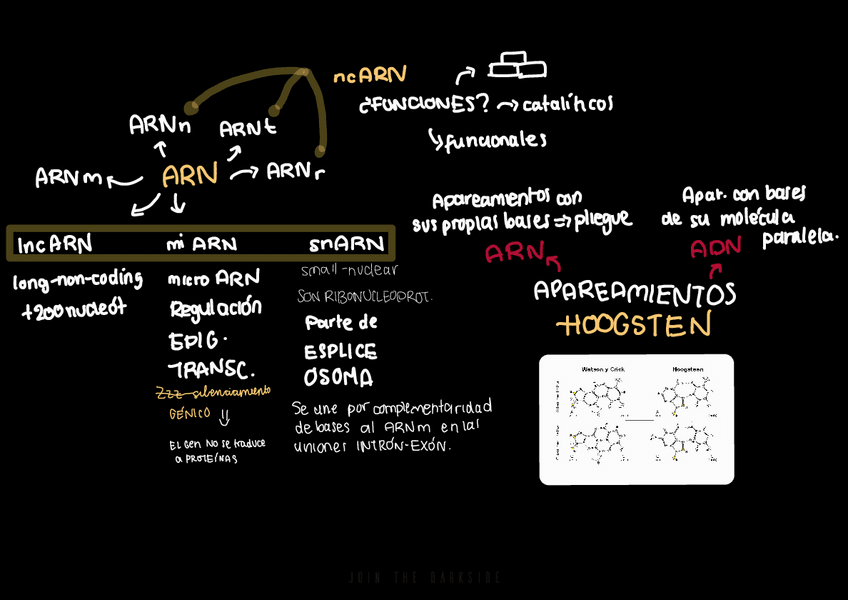 ncARN
¿FUNCIONES? → catalíticos
funcionales
ARNn
ARNt
ARNm
ARN
ARNr
lncARN
mi ARN
snARN
long-non-coding
+200 nucleót
micro ARN
Regulación
EPIG.
TRANSC.
Zzz silenciamiento
GÉNICO
EL GEN NO SE traduce
a PROTEÍNAS
small-nuclear
SON RIBONUCLEOPROT.
Parte de
ESPLICE
OSOMA
Se une por complementaridad
de bases al ARNm en las
uniones INTRÓN-EXÓN.
Apareamientos con
sus propias bases => pliegue
ARN
Apar. con bases
de su molécula
paralela.
ADN
APAREAMIENTOS
HOOGSTEN
Watson y Crick
Hoogsteen
JOIN THE DARKSIDE